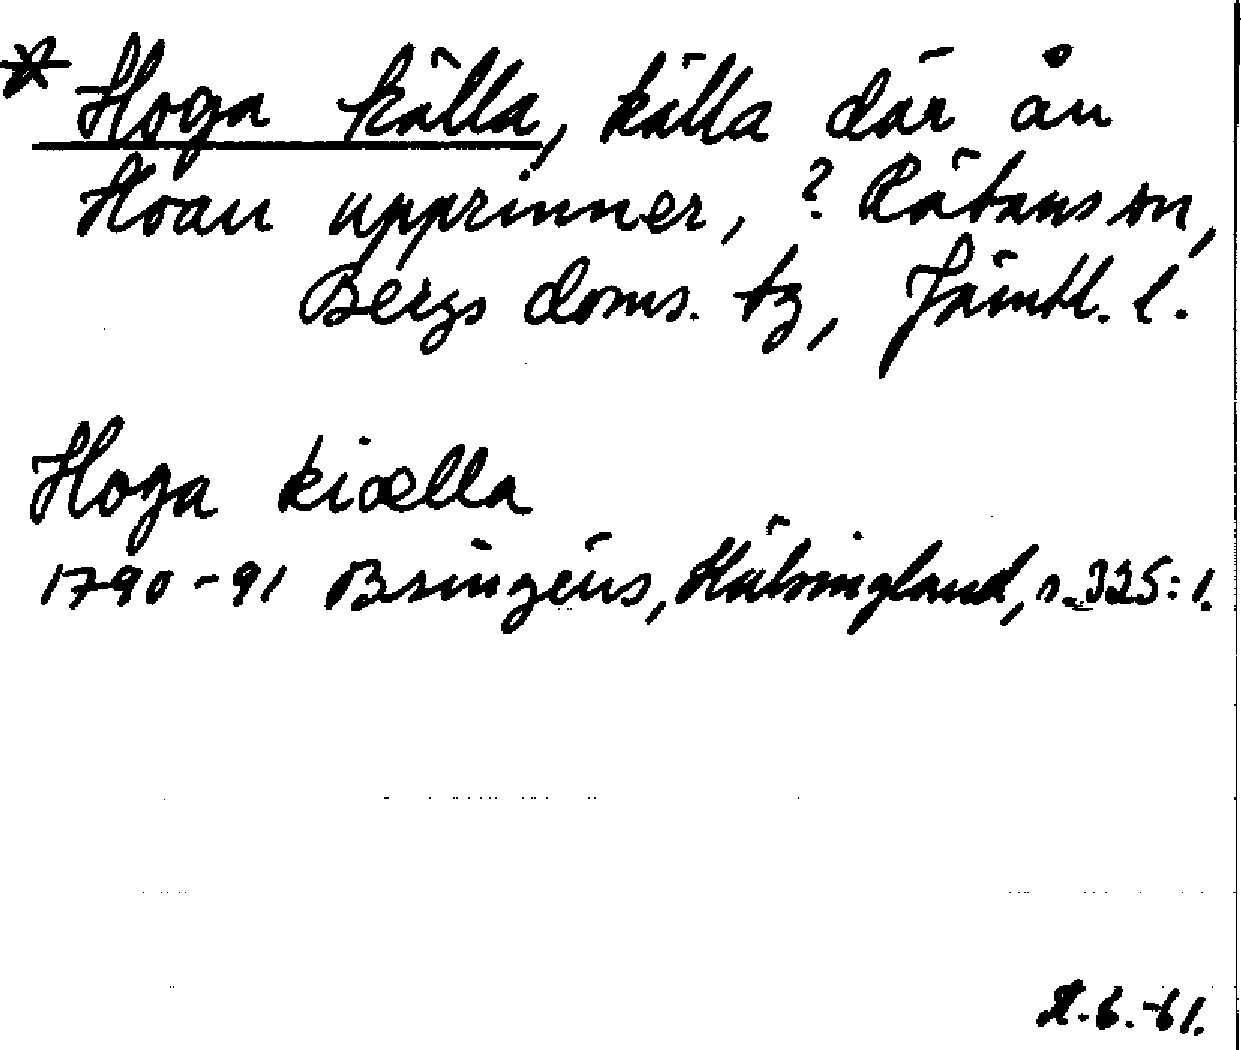 * Hoga källa, källa där ån
Hoan upprinner, ? Rätans sn,
Bergs doms. tg, Jämtl. l.
Hoga kiælla
1790-91 Bringéus, Hälsingland, s. 325: 1.
. 6. -61.